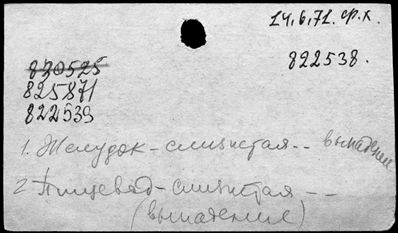 14.6.71. Ф.Х.
822538.
830525
825871
822539
1. Желудок - слизистая - - выпадение
2 Пищевод - слизистая - -
(выпадение)